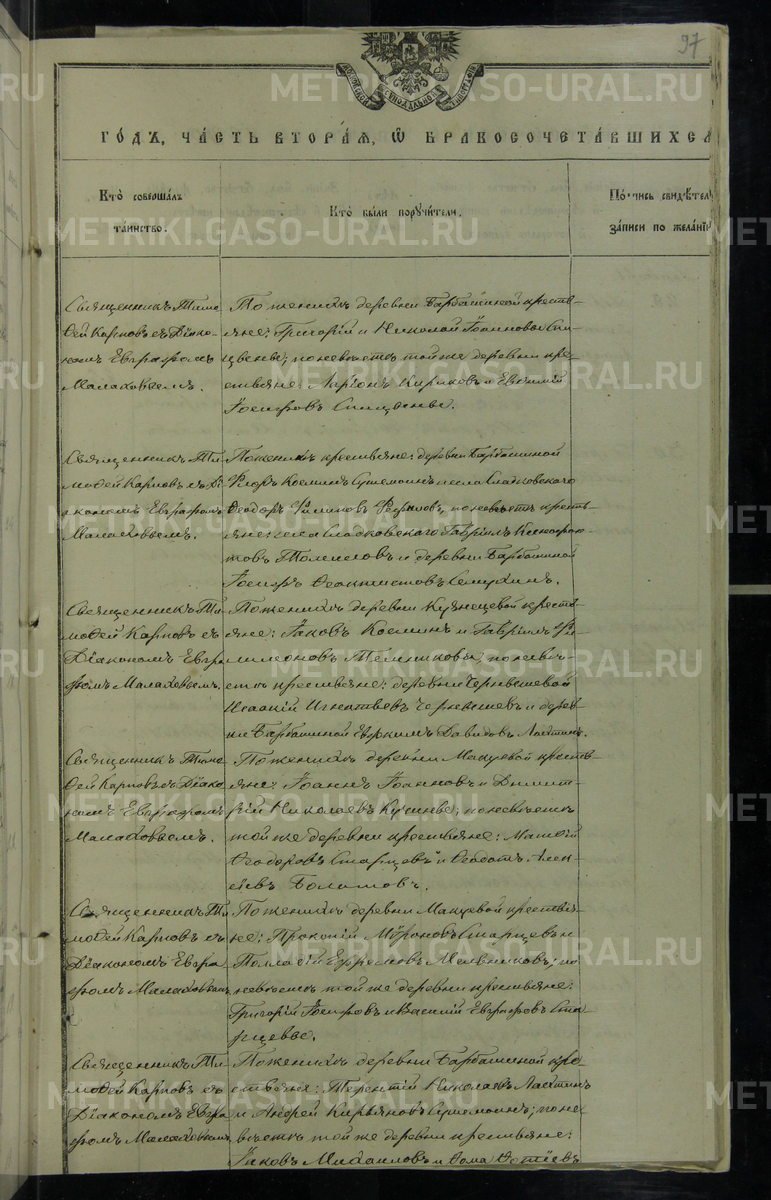 97
ГОДЪ, ЧАСТЬ ВТОРАЯ, Ѡ БРАКОСОЧЕТАВШИХСЯ
Кто совершалъ
таинство.
Кто были поручители.
Подпись свидѣтел
записи по желанію
Священникъ Тимо-
ѳей Карповъ съ Діако-
номъ Евграфомъ
Малаховымъ.
По женихѣ деревни Барбашиной кресть-
яне: Григорій и Николай Іоанновы Спи-
цыны; по невѣстѣ той же деревни кре-
стьяне: Ларіонъ Кириковъ и Евѳимій
Іосифовъ Спицыны.
Священникъ Ти-
моѳей Карповъ съ Ді-
акономъ Евграфомъ
Малаховымъ.
По женихѣ крестьяне: деревни Барбашиной
Флоръ Космин и села Сладковскаго
Ѳеодоръ по невѣстѣ кресть-
яне села Сладковскаго Гавріилъ Ксенофон-
товъ и деревни Барбашиной
Іосифъ Ѳеоктистовъ
Священникъ Ти-
моѳей Карповъ съ
Діакономъ Евгра-
фомъ Малаховымъ.
По женихѣ деревни Кузнецовой кресть-
яне: Іаковъ Косминъ и Гавріилъ Фи-
лимоновъ по невѣ-
стѣ крестьяне: деревни Чернышевой
Исаакій Игнатьевъ Чернышевъ и дерев-
ни Барбашиной Давидовъ Лаптинъ.
Священникъ Тимо-
ѳей Карповъ съ Діако-
номъ Евграфомъ
Малаховымъ.
По женихѣ деревни Макуевой крестья-
яне: Іоаннъ Іоанновъ и Димит-
рій Николаевъ по невѣстѣ
той же деревни крестьяне: Матѳій
Ѳеодоровъ Старцевъ и Ѳеодотъ Алек-
ѣевъ Болотовъ.
Священникъ Ти-
моѳей Карповъ съ
Діакономъ Евгра-
фомъ Малаховымъ.
По женихѣ деревни Макуевой крестья-
не: Прокопій Мѵроновъ Старцевъ и
Ефремовъ Мельниковъ; по
невѣстѣ той же деревни крестьяне:
Григорій Іосифовъ и Василій Евграфовъ Ста-
рцевы.
Священникъ Ти-
моѳей Карповъ съ
Діакономъ Евгра-
фомъ Малаховымъ.
По женихѣ деревни Барбашиной кре-
стьяне: Терентій Николаевъ Лаптинъ
и Андрей по не-
вѣстѣ той же деревни крестьяне:
Іаковъ Михаиловъ и Ѳома Фотіевъ
METRIKI.GASO-URAL.RU